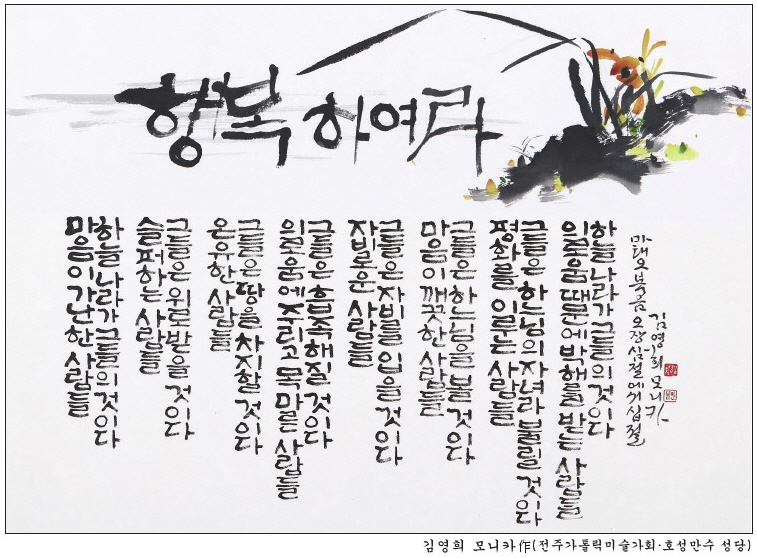 행복 하여라
마음이 가난한 사람들
하늘 나라가 그들의 것이다
슬퍼하는 사람들
그들은 위로 받을 것이다
온유한 사람들
그들은 땅을 차지할 것이다
의로움에 주리고 목마른 사람들
그들은 흡족해질 것이다
자비로운 사람들
그들은 자비를 입을 것이다
마음이 깨끗한 사람들
그들은 하느님을 볼 것이다
평화를 이루는 사람들
그들은 하느님의 자녀라 불릴 것이다
의로움 때문에 박해를 받는 사람들
하늘 나라가 그들의 것이다
마태오 복음 오장 삼절에서 십절
김영희 모니카
김영희 모니카 作(전주가톨릭미술가회·호성만수 성당)